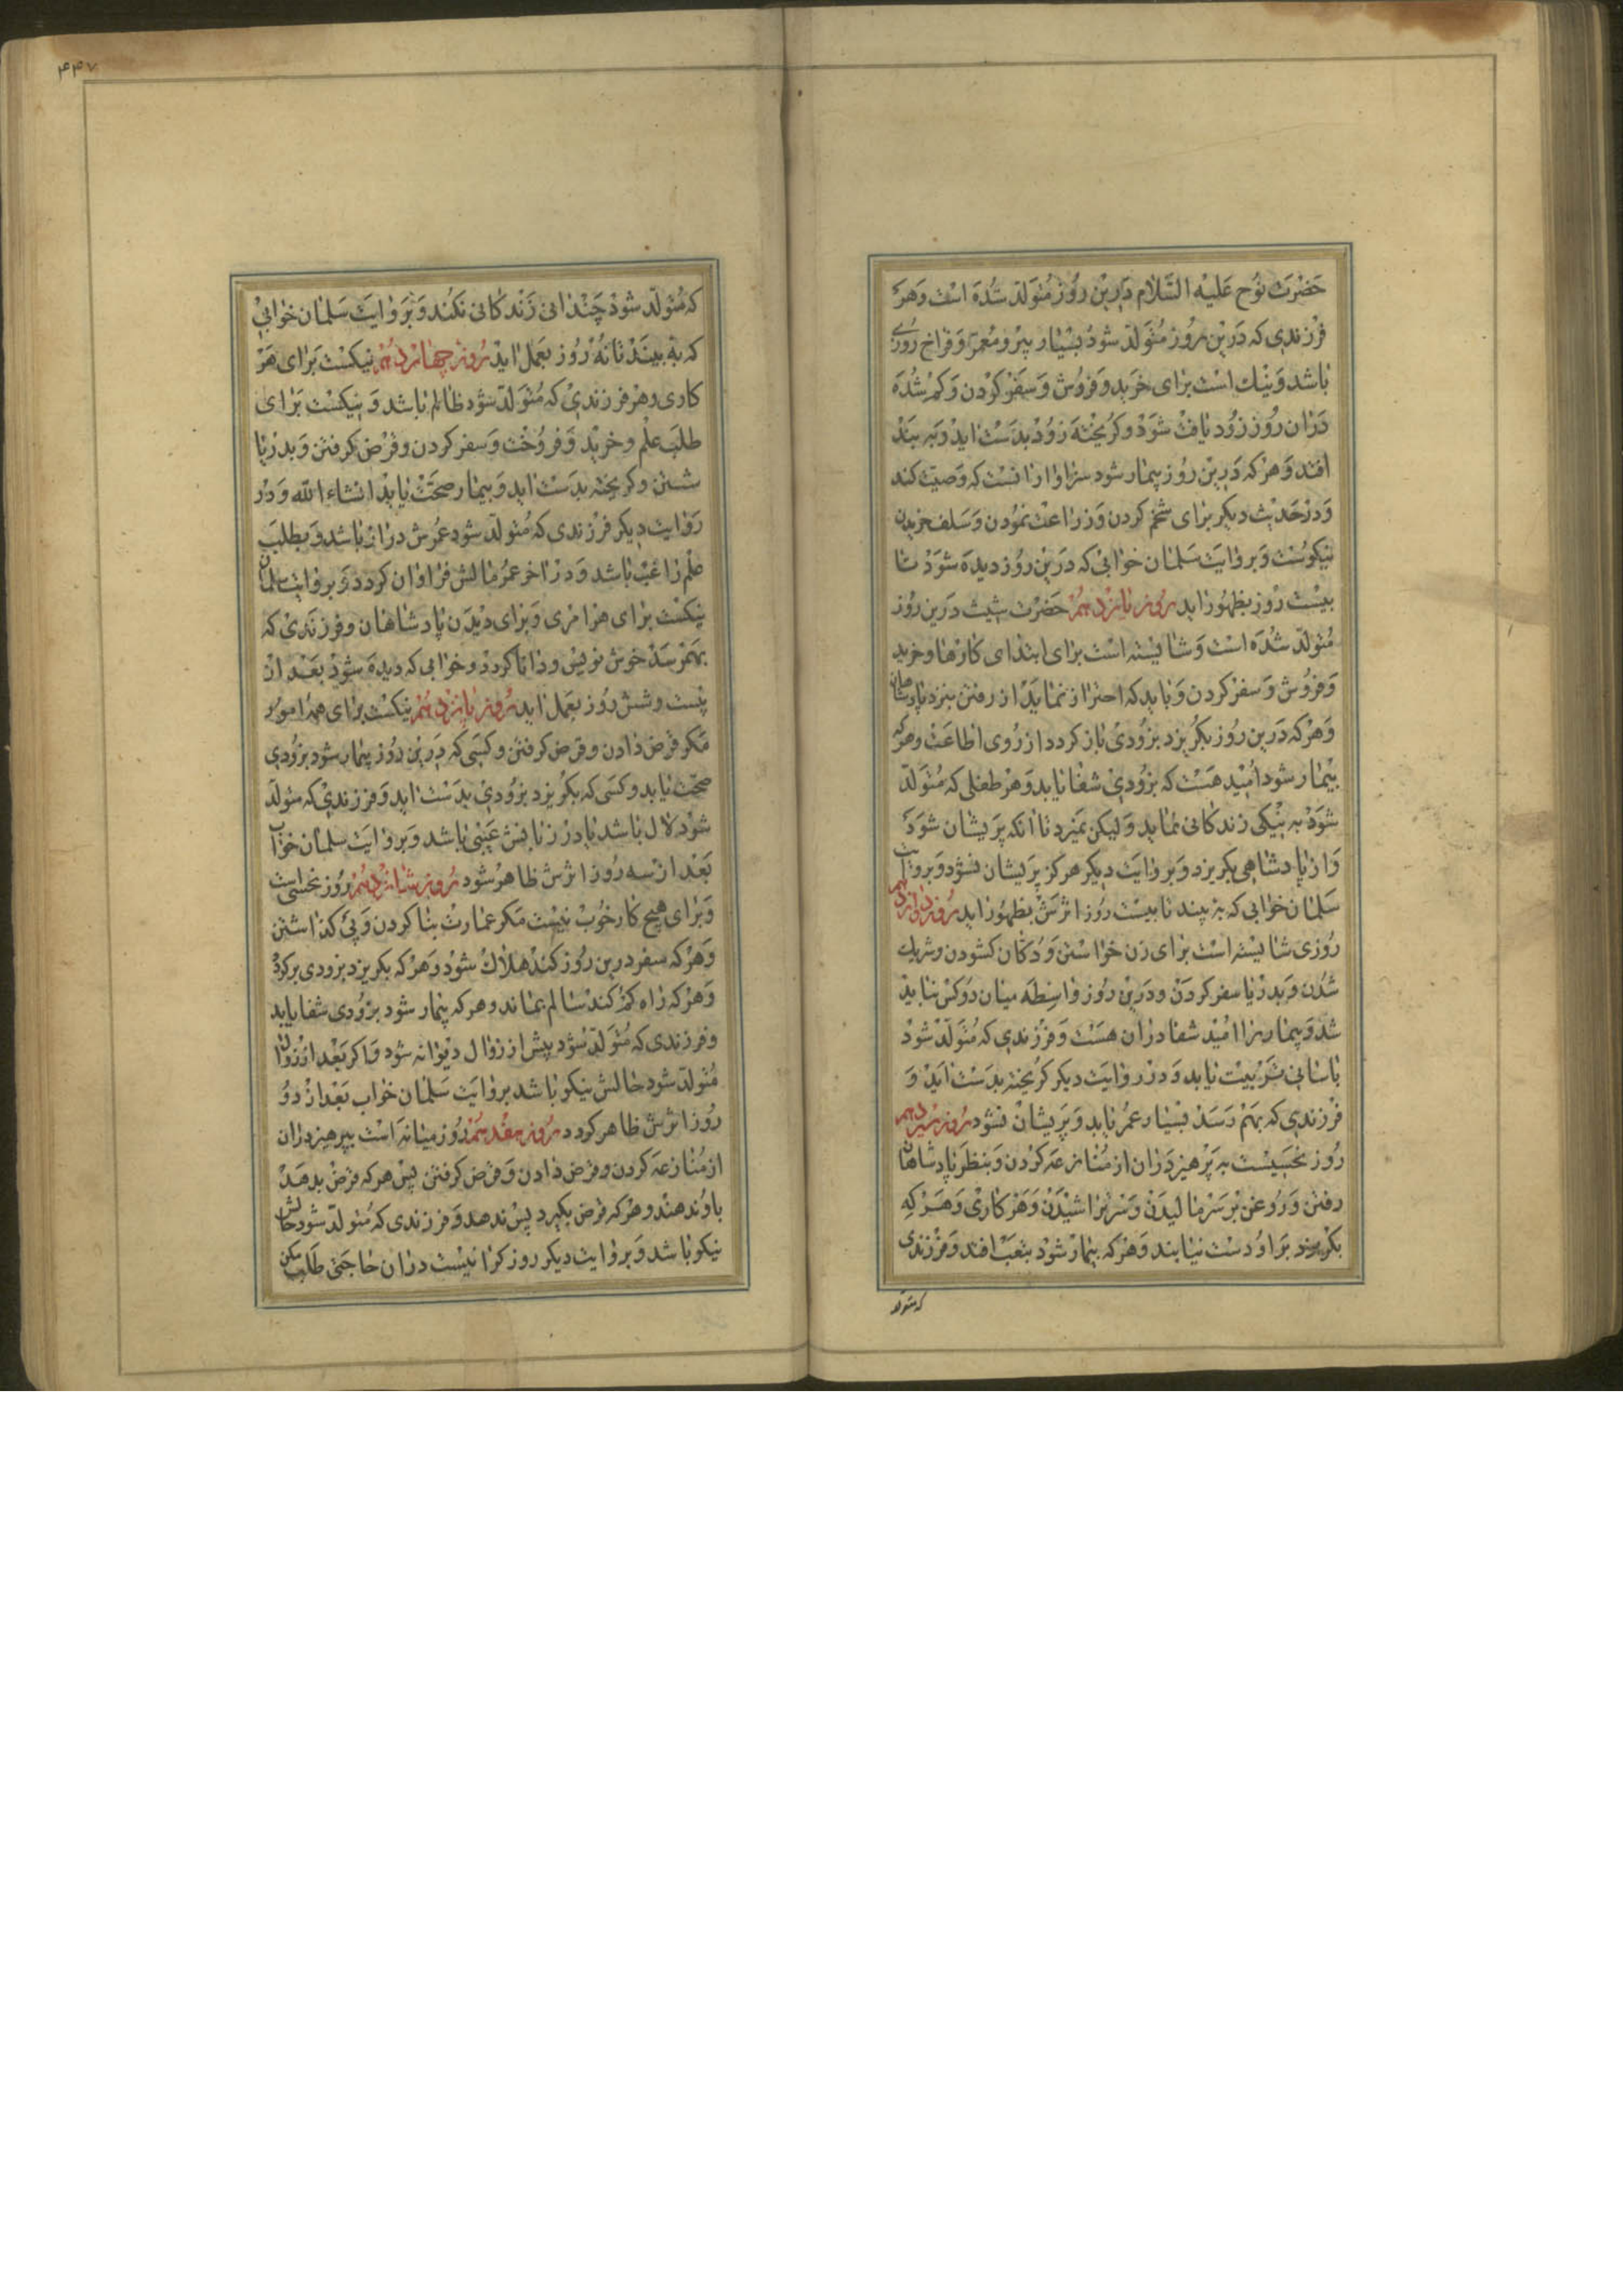 حضرت نوح علیه السّلام درین روز متولّد شده است و هر
فرزندی که درین روز متولّد شود بسیار پیر و معمّر و فراخ روزی
باشد و نیك است برای خرید و فروش و سفر کردن و کم شده
دران روز زود یافت شود و کریخته زود بدست اید و به بند
افتد و هر که درین روز بیمار شود سزاوار انست که وصیّت کند
و در حدیث دیکر برای تخم کردن و زراعت نمودن و سلف خریدن
نیکوست و بروایت سلمان خوابی که درین روز دیده شود تا
بیست روز بظهور اید روز یازدهم حضرت شیث درین روز
متولّد شده است و شایسته است برای ابتدای کارها و خرید
و فروش و سفر کردن و باید که احتراز نماید از رفتن بنزد پادشاهان
و هر که درین روز بکریزد بزودی باز کردد از روی اطاعت و هر که
بیمار شود امید هست که بزودی شفا یابد و هر طفلی که متولّد
شود به نیکی زندکانی نماید و لیکن نمیرد تا انکه پریشان شود
و از پادشاهی بکریزد و بروایت دیکر هرکز پریشان نشود و بروایت
سلمان خوابی که به بیند تا بیست روز اثرش بظهور اید روز دوازدهم
روزی شایسته است برای زن خواستن و دکان کشودن و شریك
شدن و بدریا سفر کردن و درین روز واسطه میان دو کس نباید
شد و بیماریرا امید شفا دران هست و فرزندی که متولّد شود
باسانی تربیت یابد و در روایت دیکر کریخته بدست اید و
فرزندی که بهم رسد بسیار عمر یابد و پریشان نشود روز سیزدهم
روز نحسیست به پرهیز دران از منازعه کردن و بنظر پادشاهان
رفتن و روغن بر سر مالیدن و سر تراشیدن و هر کاری و هر که
بکریزد بر او دست نیابند و هر که بیمار شود بتعب افتد و فرزندی
که متولّد
۴۴۷
که متولّد شود چندانی زندکانی نکند و بروایت سلمان خوابی
که به بیند تا نه روز بعمل اید روز چهاردهم نیکست برای هر
کاری و هر فرزندی که متولّد شود ظالم باشد و نیکست برای
طلب علم و خرید و فروخت و سفر کردن و قرض کرفتن و بدریا
شستن و کریخته بدست اید و بیمار صحّت یابد انشاء الله و در
روایت دیکر فرزندی که متولّد شود عمرش دراز باشد و بطلب
علم راغب باشد و در اخر عمر مالش فراوان کردد و بروایت سلمان
نیکست برای هر امری و برای دیدن پادشاهان و فرزندی که
بهمرسد خوش نویس و دانا کردد و خوابی که دیده شود بعد از
بیست و شش روز بعمل اید روز پانزدهم نیکست برای همه امور
مکر قرض دادن و قرض کرفتن و کسی که درین روز بیمار شود بزودی
صحّت یابد و کسی که بکریزد بزودی بدست اید و فرزندی که متولّد
شود لال باشد یا در زبانش عیبی باشد و بروایت سلمان خواب
بعد از سه روز اثرش ظاهر شود روز شانزدهم روز نحسی است
و برای هیچ کار خوب نیست مکر عمارت بنا کردن و پی کذاشتن
و هر که سفر درین روز کند هلاك شود و هر که بکریزد بزودی برکردد
و هر که راه کم کند سالم بماند و هر که بیمار شود بزودی شفا یابد
و فرزندی که متولّد شود پیش از زوال دیوانه شود و اکر بعد از زوال
متولّد شود حالش نیکو باشد بروایت سلمان خواب بعد از دو
روز اثرش ظاهر کردد روز هفدهم روز میانه است بپرهیز دران
از منازعه کردن و قرض دادن و قرض کرفتن پس هر که قرض بدهد
باو ندهند و هر که قرض بکیرد پس ندهد و فرزندی که متولّد شود حالش
نیکو باشد و بروایت دیکر روز کرانیست دران حاجتی طلب مکن